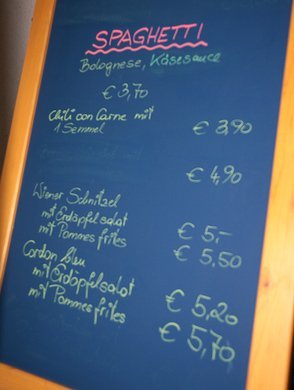 SPAGHETTI
Bolognese, Käsesauce
€ 3,70
Chili con Carne mit
1 Semmel € 3,90
€ 4,90
Wiener Schnitzel
mit Erdäpfelsalat € 5,-
mit Pommes frites € 5,50
Cordon bleu
mit Erdäpfelsalat € 5,20
mit Pommes frites € 5,70